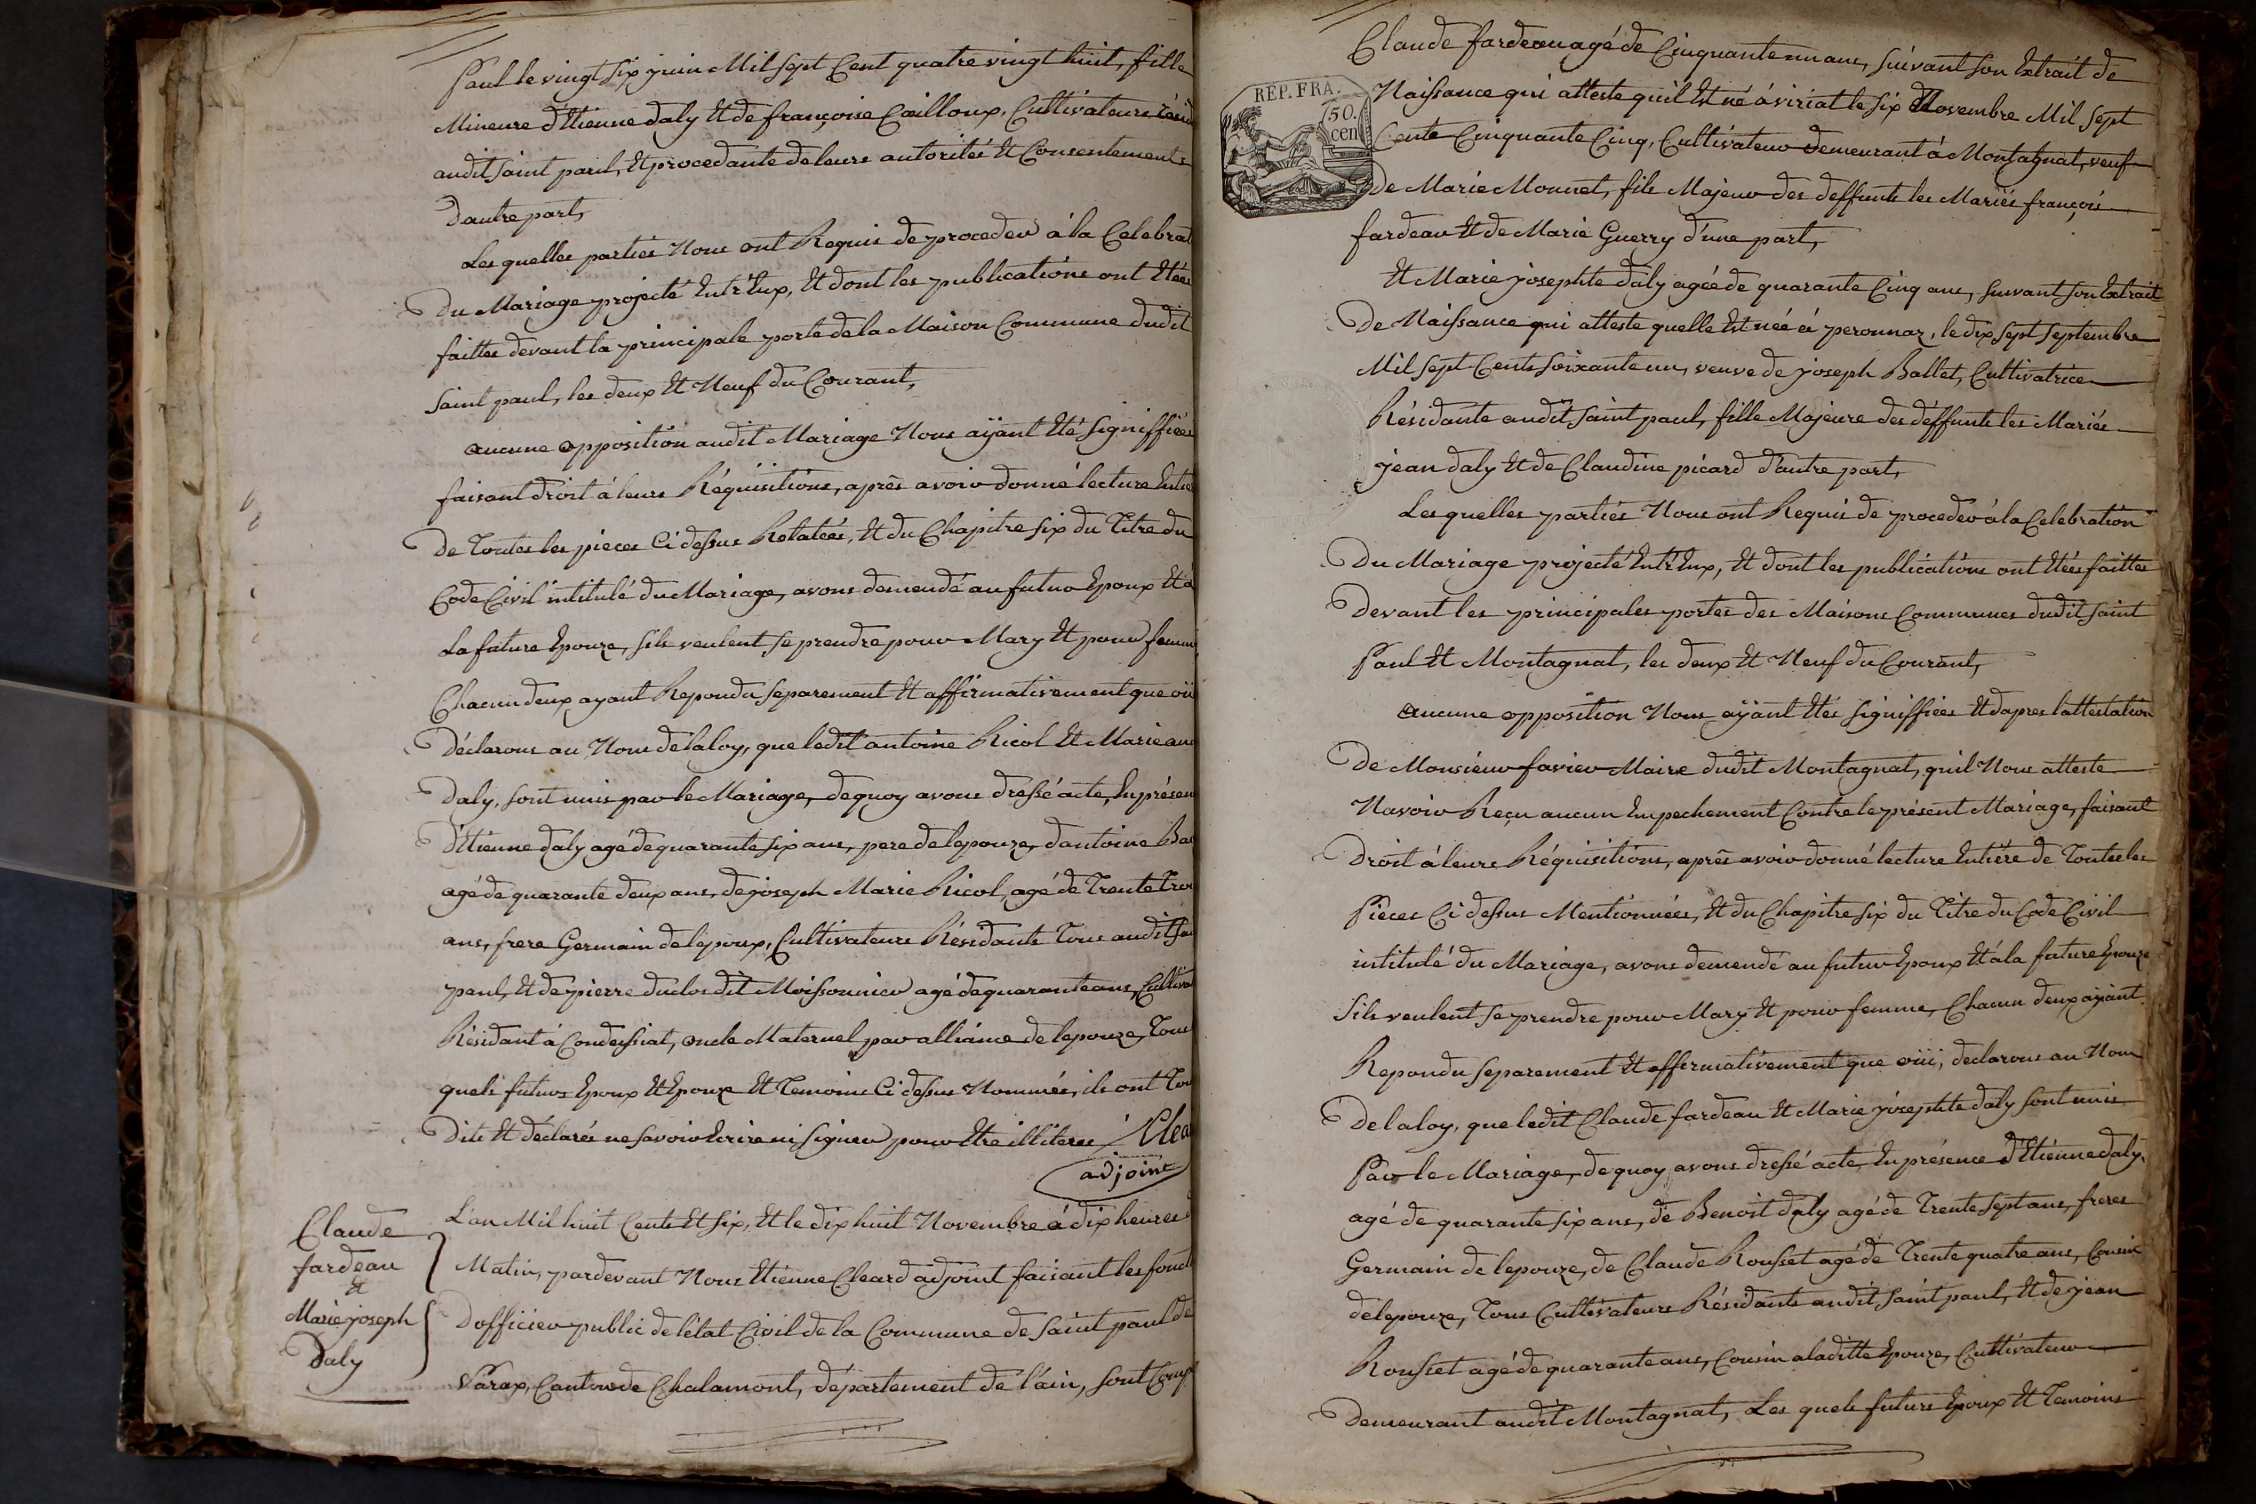 Paul le vingt six juin Mil Sept Cent quatre vingt huit, fille
Mineure d'Etienne daly Et de françoise Cailloux, Cultivateurs
audit Saint paul, Et procedante de leurs autorités Et Consentements
dautre part,
Les quelles parties Nous ont Requis de proceder à la Celebrat
Du Mariage projecté Entr'Eux, Et dont les publications ont Etées
faittes devant la principale porte de la Maison Commune dudit
Saint paul, les deux Et Neuf du Courant,
aucune opposition audit Mariage Nous aÿant Eté Signiffiées
faisant droit à leurs Réquisitions, après avoir donné lecture Entie
De Toutes les pieces Ci dessus Relatées, Et du Chapitre Six du Titre du
Code Civil intitulé du Mariage, avons demendé au futur Epoux Et à
La future Epouze, Sils veulent se prendre pour Mary Et pour femme
Chacun deux ayant Repondu Separement Et affirmativement que oüi
Déclarons au Nom de la loy, que ledit antoine Ricol Et Marie
Daly, Sont unis par le Mariage, de quoy avons dressé acte, En présen
d'Etienne daly agé de quarante Six ans, pere de lepouze, dantoine
agé de quarante deux ans, de joseph Marie Ricol, agé de Trente Troi
ans, frere Germain de lepoux, Cultivateurs Résidants Tous audit Sai
paul, Et de pierre duclos dit Moissonnier agé de quarante ans, Cultiva
Résidant à Condeissiat, oncle Maternel par alliance de lepouze, Tous
quels futurs Epoux Et Epouze Et Temoins Ci dessus Nommés, ils ont Tou
Dits Et déclarés ne Savoir Ecrire ni Signer pour Etre illiteres / Clea
adjoint
Claude
fardeau
Et
Marie joseph
Daly
L'an Mil huit Cents Et Six, Et le dix huit Novembre à dix heures d
Matin, pardevant Nous Etienne Cleard adjoint faisant les foncti
Dofficier public de letat Civil de la Commune de Saint paul de
Varax, Canton de Chalamont, département de l'ain, Sont Comp
REP. FRA.
50.
cen
Claude fardeau agé de Cinquante un ans, Suivant Son Extrait de
Naissance qui atteste quil Est né à viriat le Six Novembre Mil Sept
Cents Cinquante Cinq, Cultivateur demeurant à Montagnat, veuf
de Marie Monnet, fils Majeur des deffunts les Mariés françois
fardeau Et de Marie Guerry d'une part,
Et Marie josephte daly agée de quarante Cinq ans, Suivant Son Extrait
De Naissance qui atteste quelle Est née à peronnaz, le dix Sept Septembre
Mil Sept Cents Soixante un, veuve de joseph Ballet, Cultivatrice
Résidante audit Saint paul, fille Majeure des déffunts les Mariés
jean daly Et de Claudine picard d'autre part,
Les quelles parties Nous ont Requis de proceder à la Celebration
Du Mariage projecté Entr'Eux, Et dont les publications ont Etées faittes
Devant les principales portes des Maisons Communes dudit Saint
Paul Et Montagnat, les deux Et Neuf du Courant,
aucune opposition Nous aÿant Etés Signiffiées Et dapres l'attestation
De Monsieur favier Maire dudit Montagnat, quil Nous atteste
Navoir Reçu aucun Empechement Contre le présent Mariage, faisant
Droit à leurs Réquisitions, après avoir donné lecture Entière de Toutes les
Pièces Ci dessus Mentionnées, Et du Chapitre Six du Titre du Code Civil
intitulé du Mariage, avons demendé au futur Epoux Et à la future Epouze
Sils veulent se prendre pour Mary Et pour femme, Chacun deux aÿant
Repondu Separement Et affirmativement que oüi, declarons au Nom
De la loy, que ledit Claude fardeau Et Marie josephte daly Sont unis
Par le Mariage, de quoy avons dressé acte En présence d'Etienne daly,
agé de quarante Six ans, de Benoit daly agé de Trente Sept ans, freres
Germain de lepouze, de Claude Rousset agé de Trente quatre ans, Cousin
de lepouze, Tous Cultivateurs Résidants audit Saint paul, Et de jean
Rousset agé de quarante ans, Cousin aladitte Epouze, Cultivateur
Demeurant audit Montagnat, Les quels futurs Epoux Et Temoins